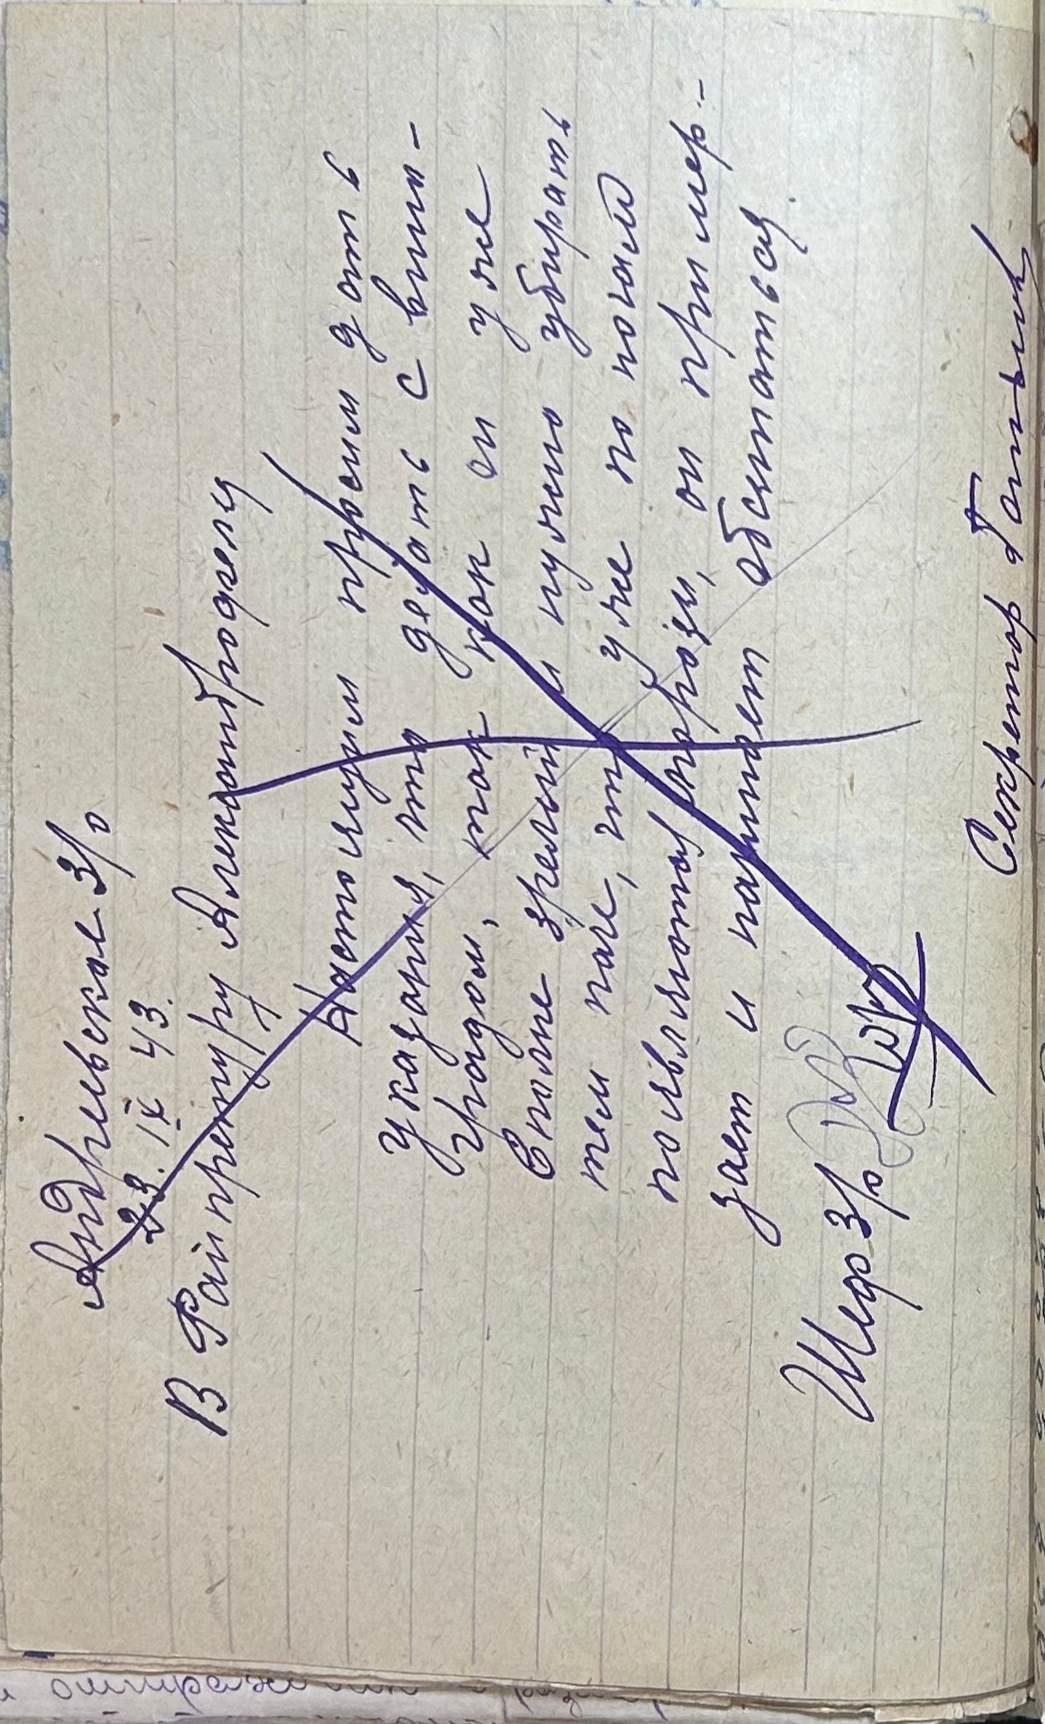 Андреевское З/о
23. IX 43.
В Райпретуру Александродолу
Настоящим просим дать
указания, что делать с вино-
градом, так как он уже
вполне зрелый и нужно убирать
тем паче, что уже по ночам
появляются морозы, он пример-
зает и начинает обсыпаться.
Шеф З/о
Секретар